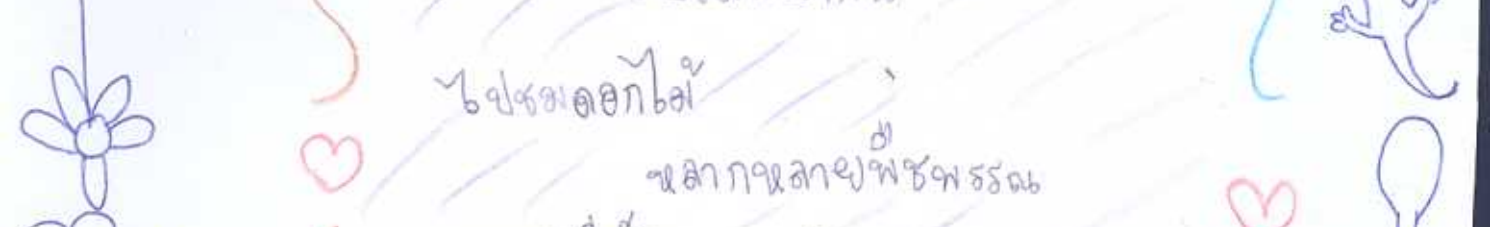 ไปชมดอกไม้
หลากหลายพืชพรรณ